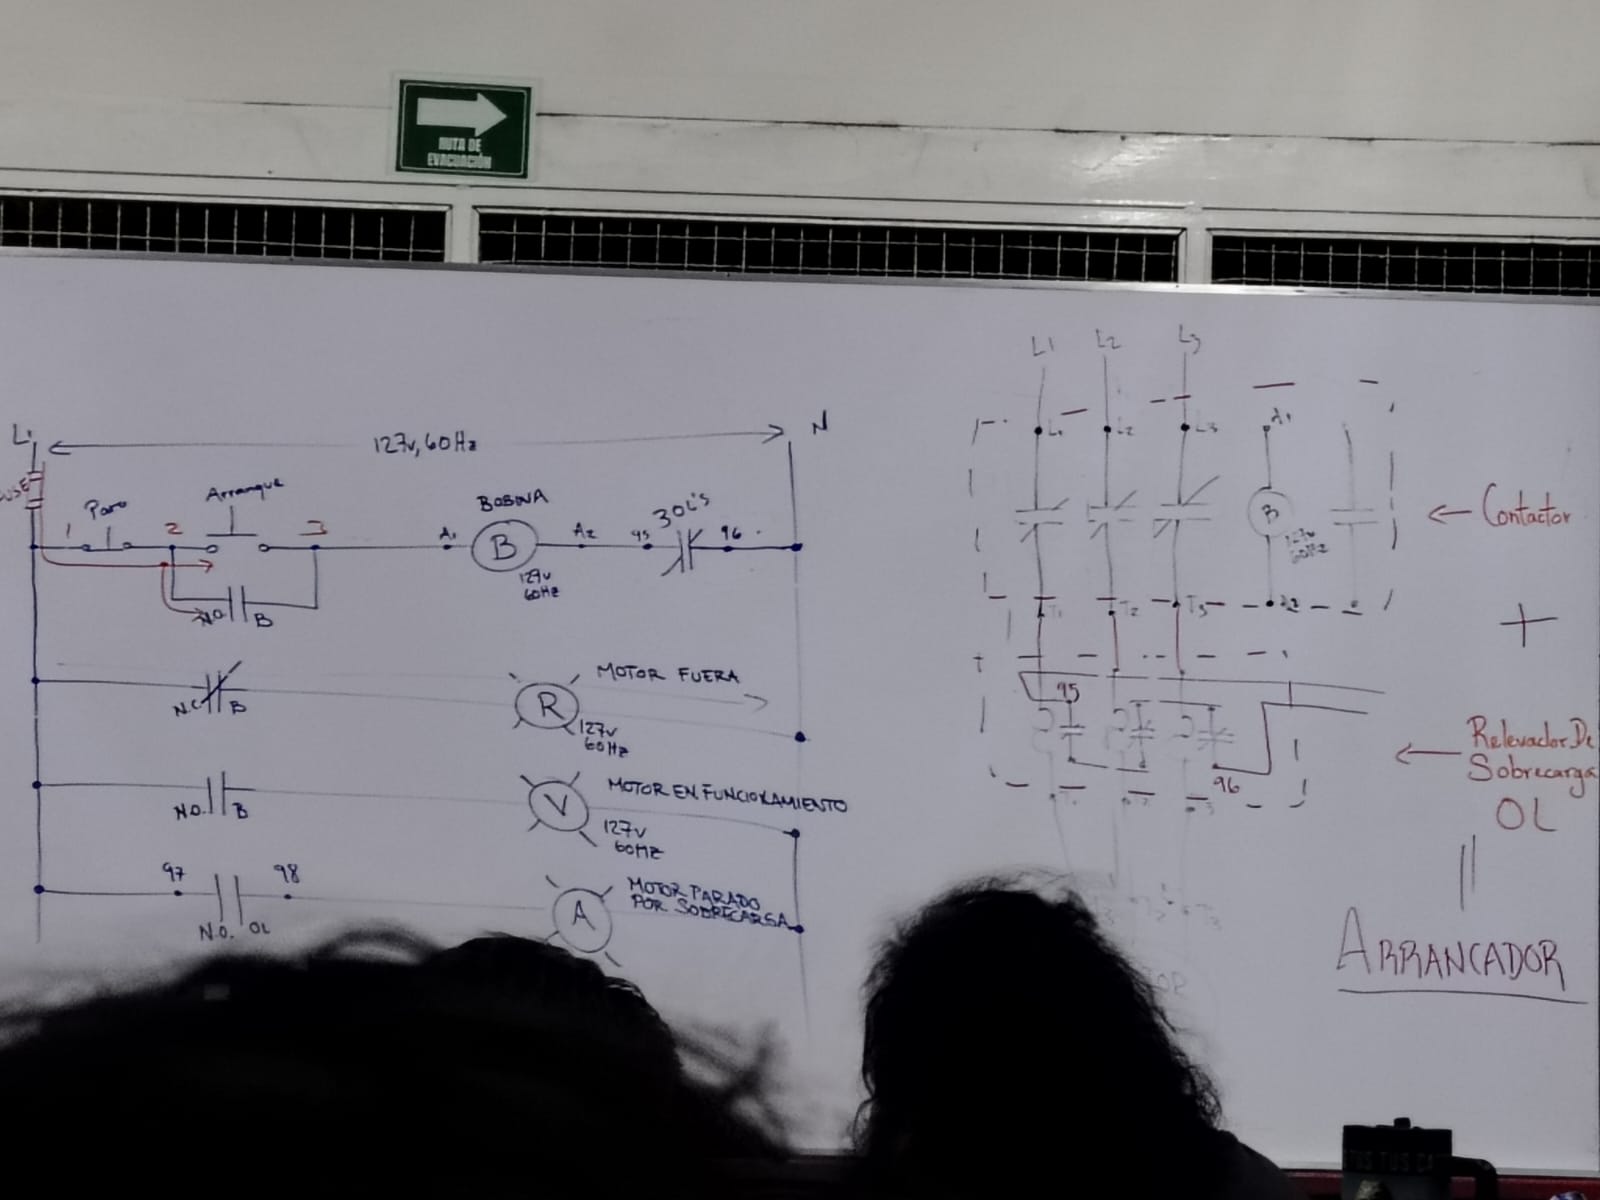 RUTA DE
EVACUACIÓN
L1
127v, 60Hz
N
1
Paro
2
Arranque
3
A1
BOBINA
B
127v
60Hz
A2
95
3OL's
96
N.O.
B
N.C
B
R
127v
60Hz
MOTOR FUERA
N.O.
B
V
127v
60Hz
MOTOR EN FUNCIONAMIENTO
97
98
N.O.
OL
A
MOTOR PARADO
POR SOBRECARGA
L1
L2
L3
L1
L2
L3
A1
B
127v
60Hz
T1
T2
T3
A2
95
96
← Contactor
+
← Relevador De
Sobrecarga
OL
ARRANCADOR